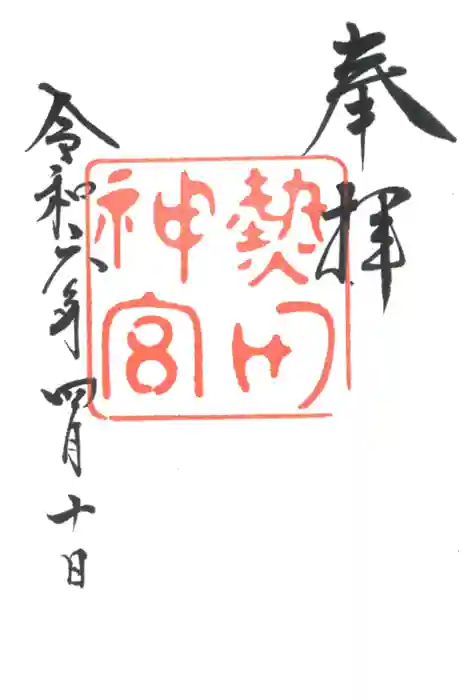 奉拝
熱田
神宮
令和六年四月十日